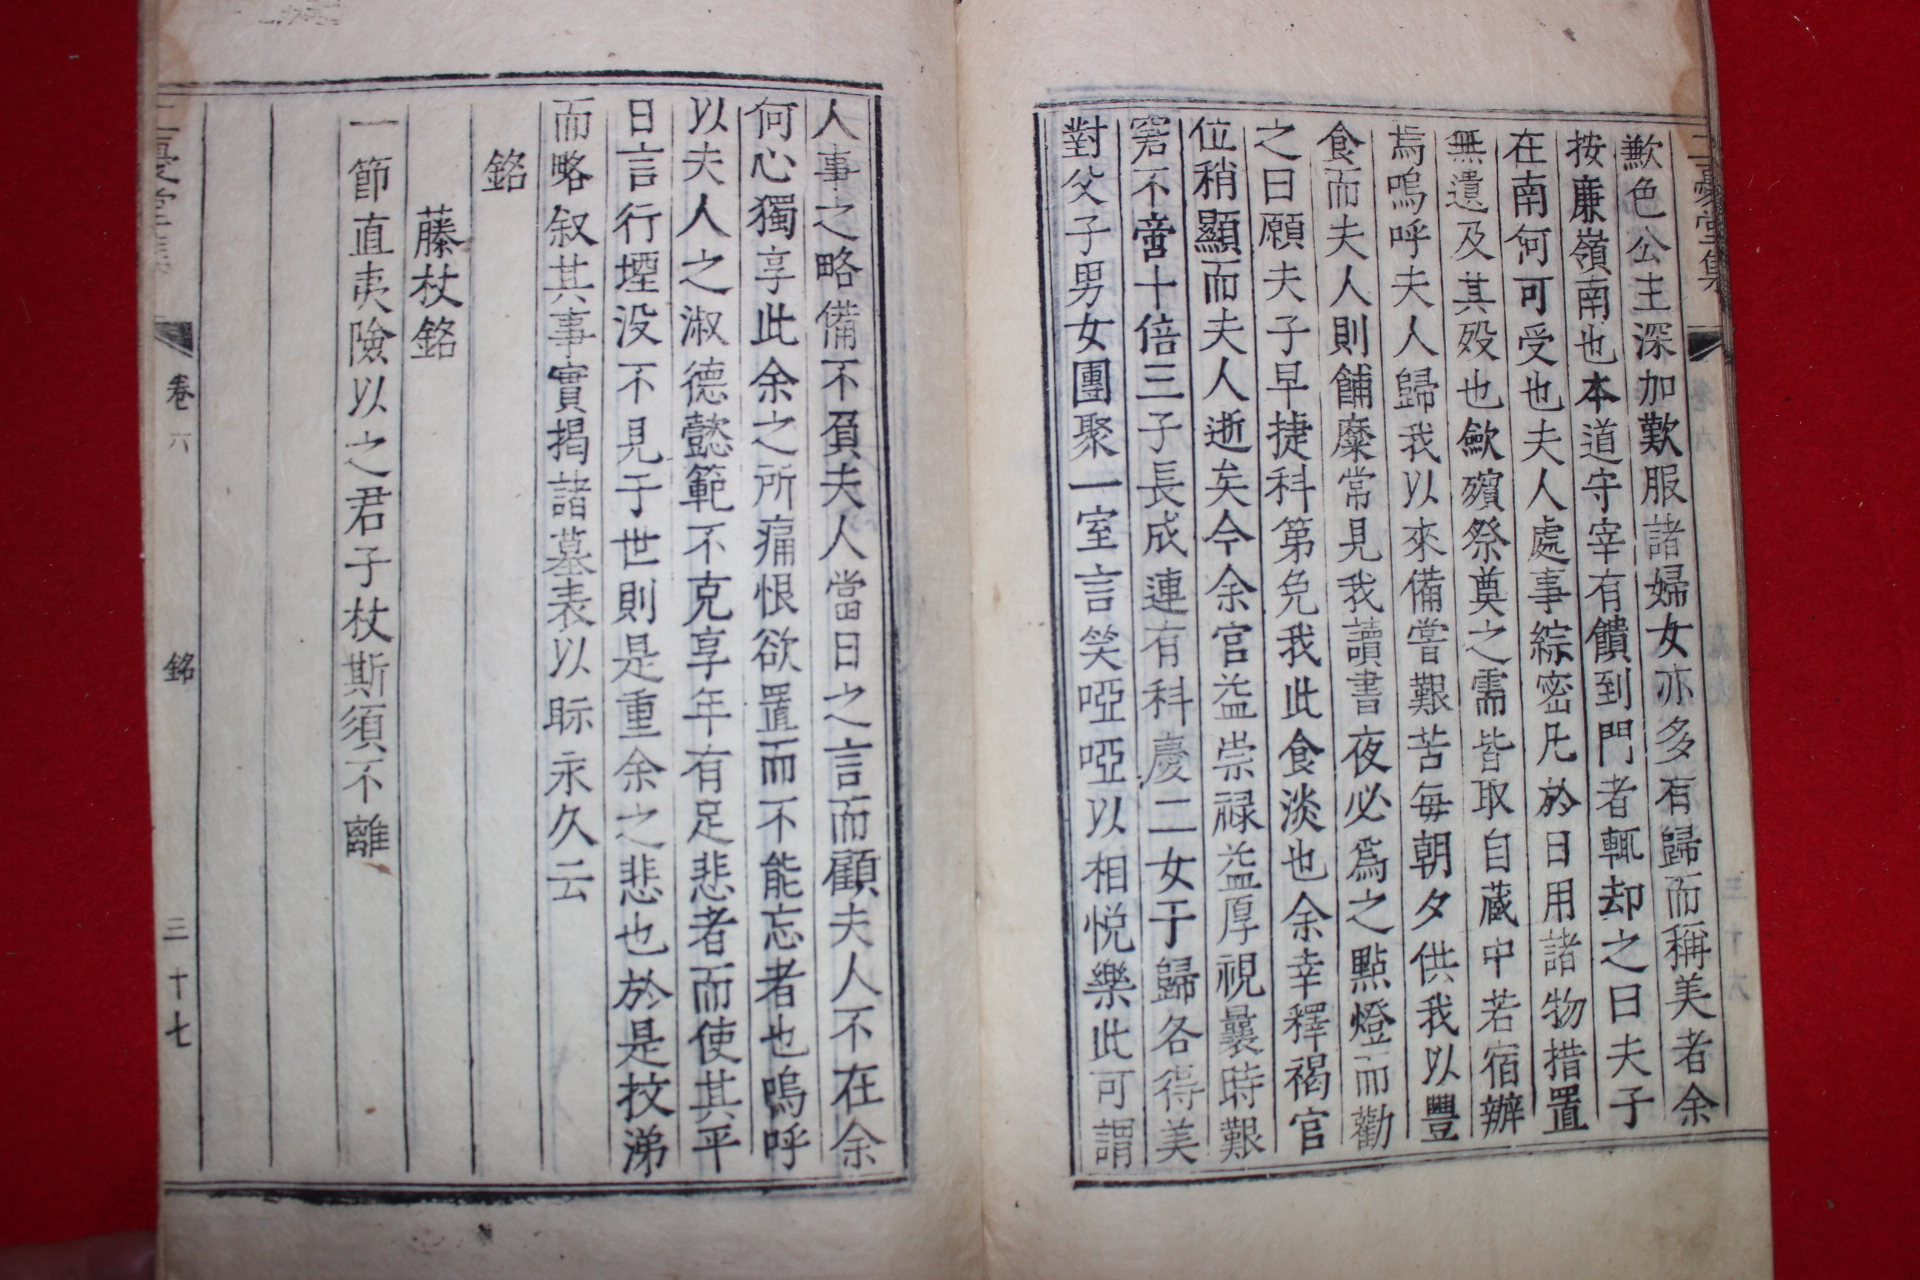 歉色公主深加歎服諸婦女亦多有歸而稱美者余
按廉嶺南也本道守宰有饋到門者輒却之曰夫子
在南何可受也夫人處事綜密凡於日用諸物措置
無遺及其歿也斂殯祭奠之需皆取自藏中若宿辦
焉嗚呼夫人歸我以來備嘗艱苦每朝夕供我以豐
食而夫人則餔糜常見我讀書夜必爲之點燈而勸
之曰願夫子早捷科第免我此食淡也余幸釋褐官
位稍顯而夫人逝矣今余官益崇祿益厚視曩時艱
窘不啻十倍三子長成連有科慶二女于歸各得美
對父子男女團聚一室言笑啞啞以相悅樂此可謂
人事之略備不負夫人當日之言而顧夫人不在余
何心獨享此余之所痛恨欲置而不能忘者也嗚呼
以夫人之淑德懿範不克享年有足悲者而使其平
日言行堙没不見于世則是重余之悲也於是抆涕
而略叙其事實揭諸墓表以眎永久云
銘
藤杖銘
一節直夷險以之君子杖斯須不離
卷六
銘
三十七